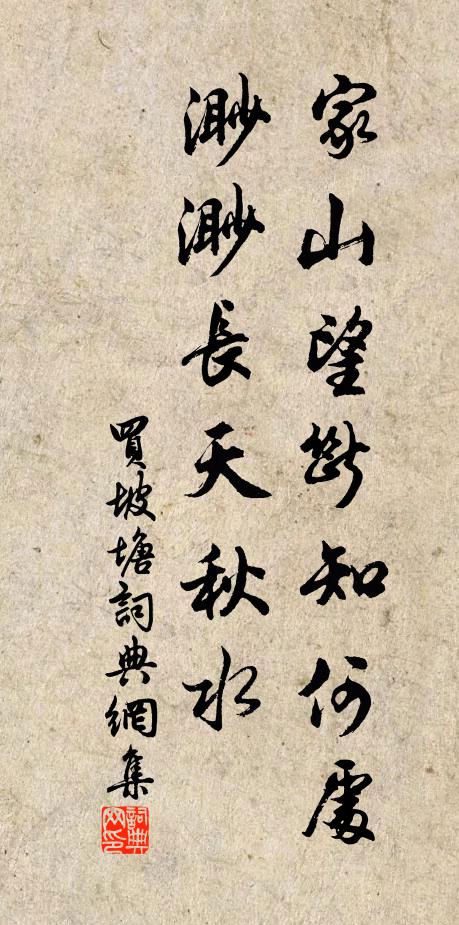 家山望斷知何處
渺渺長天秋水
買坡塘詞典網集
詞典网印